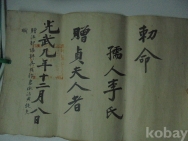 勅命
孺人李氏
贈貞夫人者
光武九年十二月八日
kobay